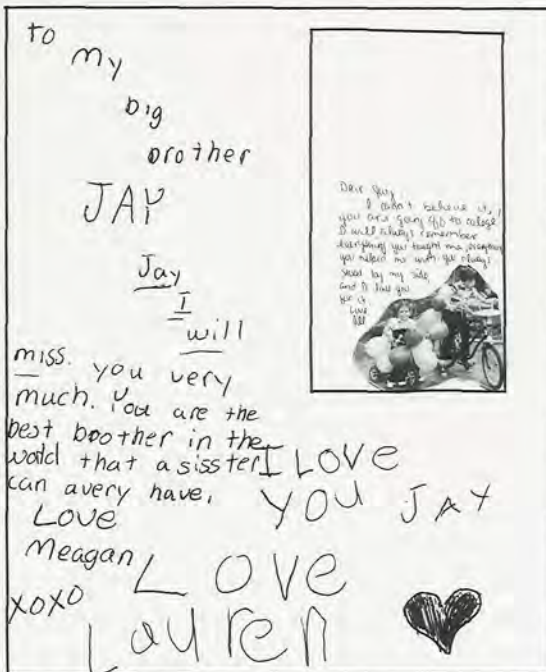 to
my
big
brother
JAY
Jay
I
will
miss. you very
much. You are the
best boother in the
world that a sisster
can avery have,
Love
Meagan
XOXO
Dear Jay,
I can't believe it,
you are going off to college
I will always remember
everything you taught me, everything
you helped me with. You always
stood by my side
and I love you
for it
Love
I LOVE
YOU JAY
LOVE
Lauren